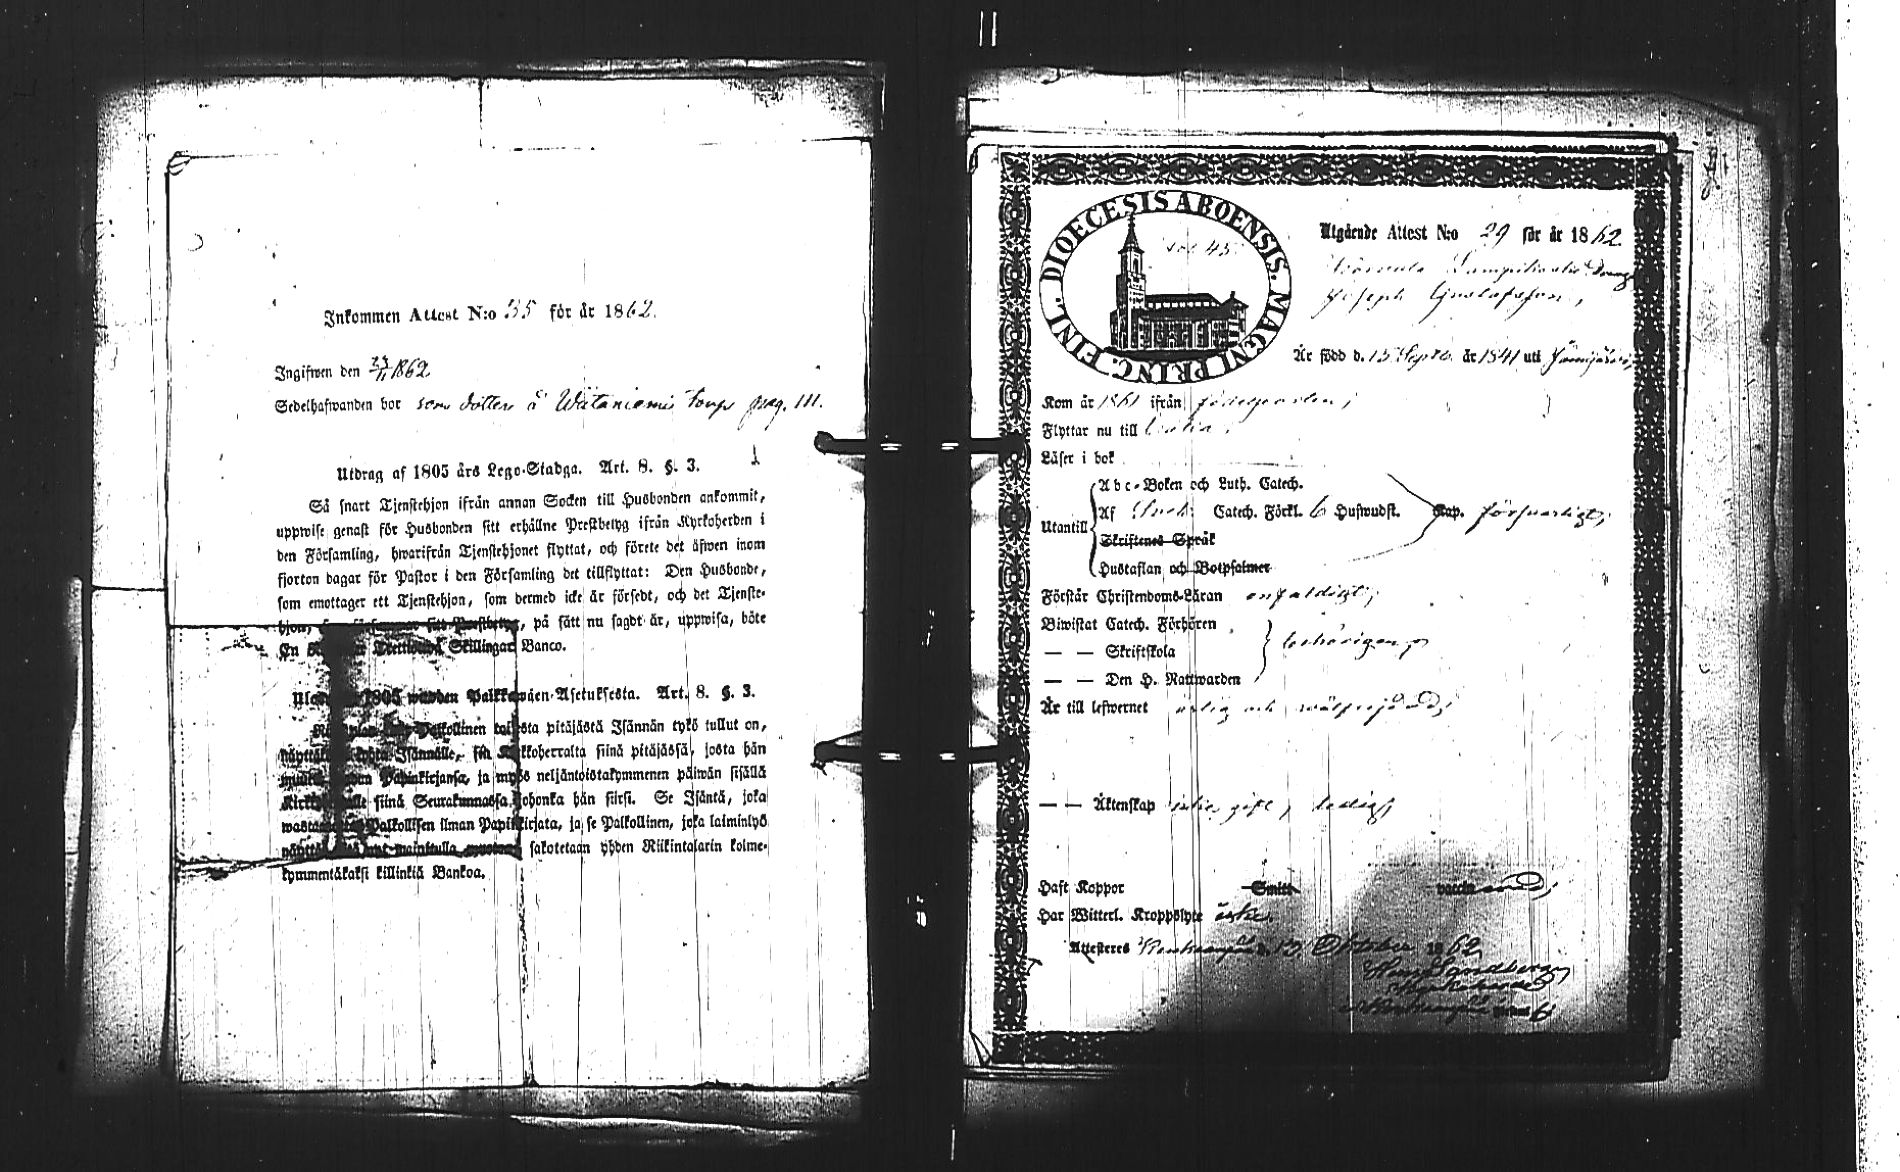 Inkommen Attest N:o 35 för år 1862.
Ingifwen den 23/11 1862
Sedelhafwanden bor som dotter å Wätaniemi torp pag. 111.
Utdrag af 1805 års Lego-Stadga. Art. 8. §. 3.
Så snart Tjenstehjon ifrån annan Socken till Husbonden ankommit,
uppwise genast för Husbonden sitt erhållne Prestbetyg ifrån Kyrkoherden i
den Församling, hwarifrån Tjenstehjonet flyttat, och förete det äfwen inom
fjorton dagar för Pastor i den Församling det tillflyttat: Den Husbonde,
som emottager ett Tjenstehjon, som dermed icke är försedt, och det Tjenste-
hjon, sitt Prestbetyg, på sätt nu sagdt är, uppwisa, böte
En Trettiotvå Skillingar Banco.
1805 wuoden Palkkawäen-Asetuksesta. Art. 8. §. 3.
Palkollinen toisesta pitäjästä Isännän tykö tullut on,
Isännälle, sen Kirkkoherralta siinä pitäjässä, josta hän
Papinkirjansa, ja myös neljäntoistakymmenen päiwän sisällä
siinä Seurakunnassa, johonka hän siirsi. Se Isäntä, joka
Palkollisen ilman Papinkirjata, ja se Palkollinen, joka laiminlyö
mainitulla sakotetaan yhden Riikintalarin kolme-
kymmentäkaksi killinkiä Bankoa.
DIOECESIS ABOENSIS. MAGNI PRINC. FINL.
45
Utgående Attest N:o 29 för år 1862.
Dreng
Joseph Gustafsson,
Är född d. 15 Septb. år 1841 uti
Kom år 1861 ifrån födelseorten;
Flyttar nu till
Läser i bok
Abc-Boken och Luth. Catech.
Utantill
Af Catech. Förkl. 6 Hufwudst. Kap. försvarligt;
Skriftenes Språk
Hustaflan och Botpsalmer
Förstår Christendoms-Läran enfaldigt;
Biwistat Catech. Förhören
— — Skriftskola behörigen;
— — Den H. Nattwarden
Är till lefwernet ärlig och wälfrejdad;
— — Äktenskap icke gift, ledig;
Haft Koppor Smitt vaccinerad;
Har Witterl. Kroppslyte icke.
Attesteres d. 13 Oktober 1862
Sandberg
Kyrkoherde